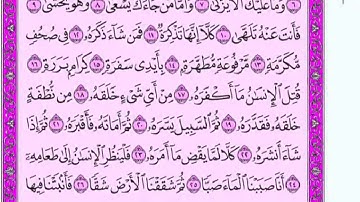 ۝٦ وَمَا عَلَيْكَ أَلَّا يَزَّكَّىٰ ۝٧ وَأَمَّا مَن جَآءَكَ يَسْعَىٰ ۝٨ وَهُوَ يَخْشَىٰ ۝٩
فَأَنتَ عَنْهُ تَلَهَّىٰ ۝١٠ كَلَّآ إِنَّهَا تَذْكِرَةٌ ۝١١ فَمَن شَآءَ ذَكَرَهُۥ ۝١٢ فِى صُحُفٍ
مُّكَرَّمَةٍ ۝١٣ مَّرْفُوعَةٍ مُّطَهَّرَةٍۭ ۝١٤ بِأَيْدِى سَفَرَةٍ ۝١٥ كِرَامٍۭ بَرَرَةٍ ۝١٦
قُتِلَ ٱلْإِنسَٰنُ مَآ أَكْفَرَهُۥ ۝١٧ مِنْ أَىِّ شَىْءٍ خَلَقَهُۥ ۝١٨ مِن نُّطْفَةٍ
خَلَقَهُۥ فَقَدَّرَهُۥ ۝١٩ ثُمَّ ٱلسَّبِيلَ يَسَّرَهُۥ ۝٢٠ ثُمَّ أَمَاتَهُۥ فَأَقْبَرَهُۥ ۝٢١ ثُمَّ إِذَا
شَآءَ أَنشَرَهُۥ ۝٢٢ كَلَّا لَمَّا يَقْضِ مَآ أَمَرَهُۥ ۝٢٣ فَلْيَنظُرِ ٱلْإِنسَٰنُ إِلَىٰ طَعَامِهِۦٓ
۝٢٤ أَنَّا صَبَبْنَا ٱلْمَآءَ صَبًّا ۝٢٥ ثُمَّ شَقَقْنَا ٱلْأَرْضَ شَقًّا ۝٢٦ فَأَنۢبَتْنَا فِيهَا